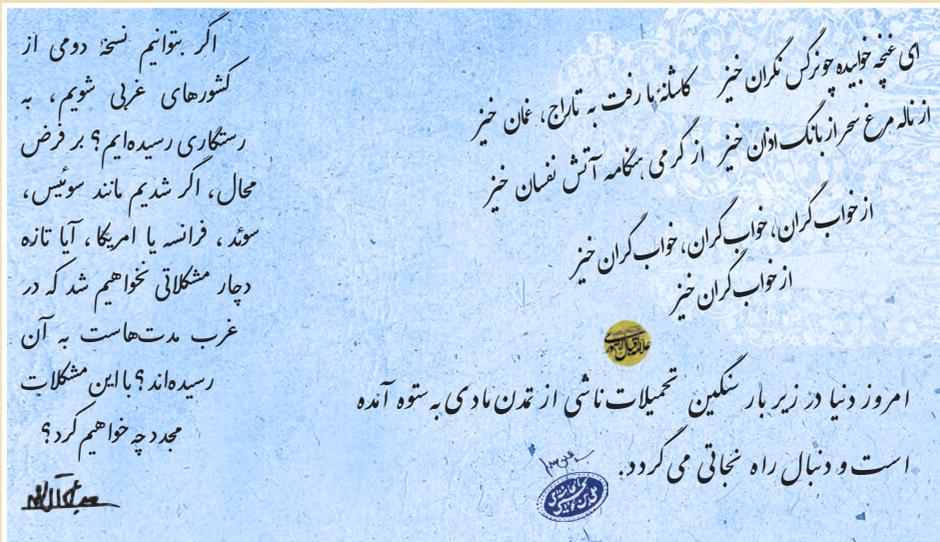 ای غنچه خوابیده چو نرگس نگران خیز    کاشانهٔ ما رفت به تاراج، غمان خیز
از ناله مرغ سحر از بانک اذان خیز    از گرمی هنگامه آتش نفسان خیز
از خواب گران، خواب گران، خواب گران خیز
از خواب گران خیز
علامه اقبال لاهوری
امروز دنیا در زیر بار سنگین تحمیلات ناشی از تمدن مادی به ستوه آمده
است و دنبال راه نجاتی می‌گردد.
اگر بتوانیم نسخهٔ دومی از
کشورهای غربی شویم، به
رستگاری رسیده‌ایم؟ بر فرض
محال، اگر شدیم مانند سوئیس،
سوئد، فرانسه یا امریکا، آیا تازه
دچار مشکلاتی نخواهیم شد که در
غرب مدت‌هاست به آن
رسیده‌اند؟ با این مشکلات
مجدد چه خواهیم کرد؟